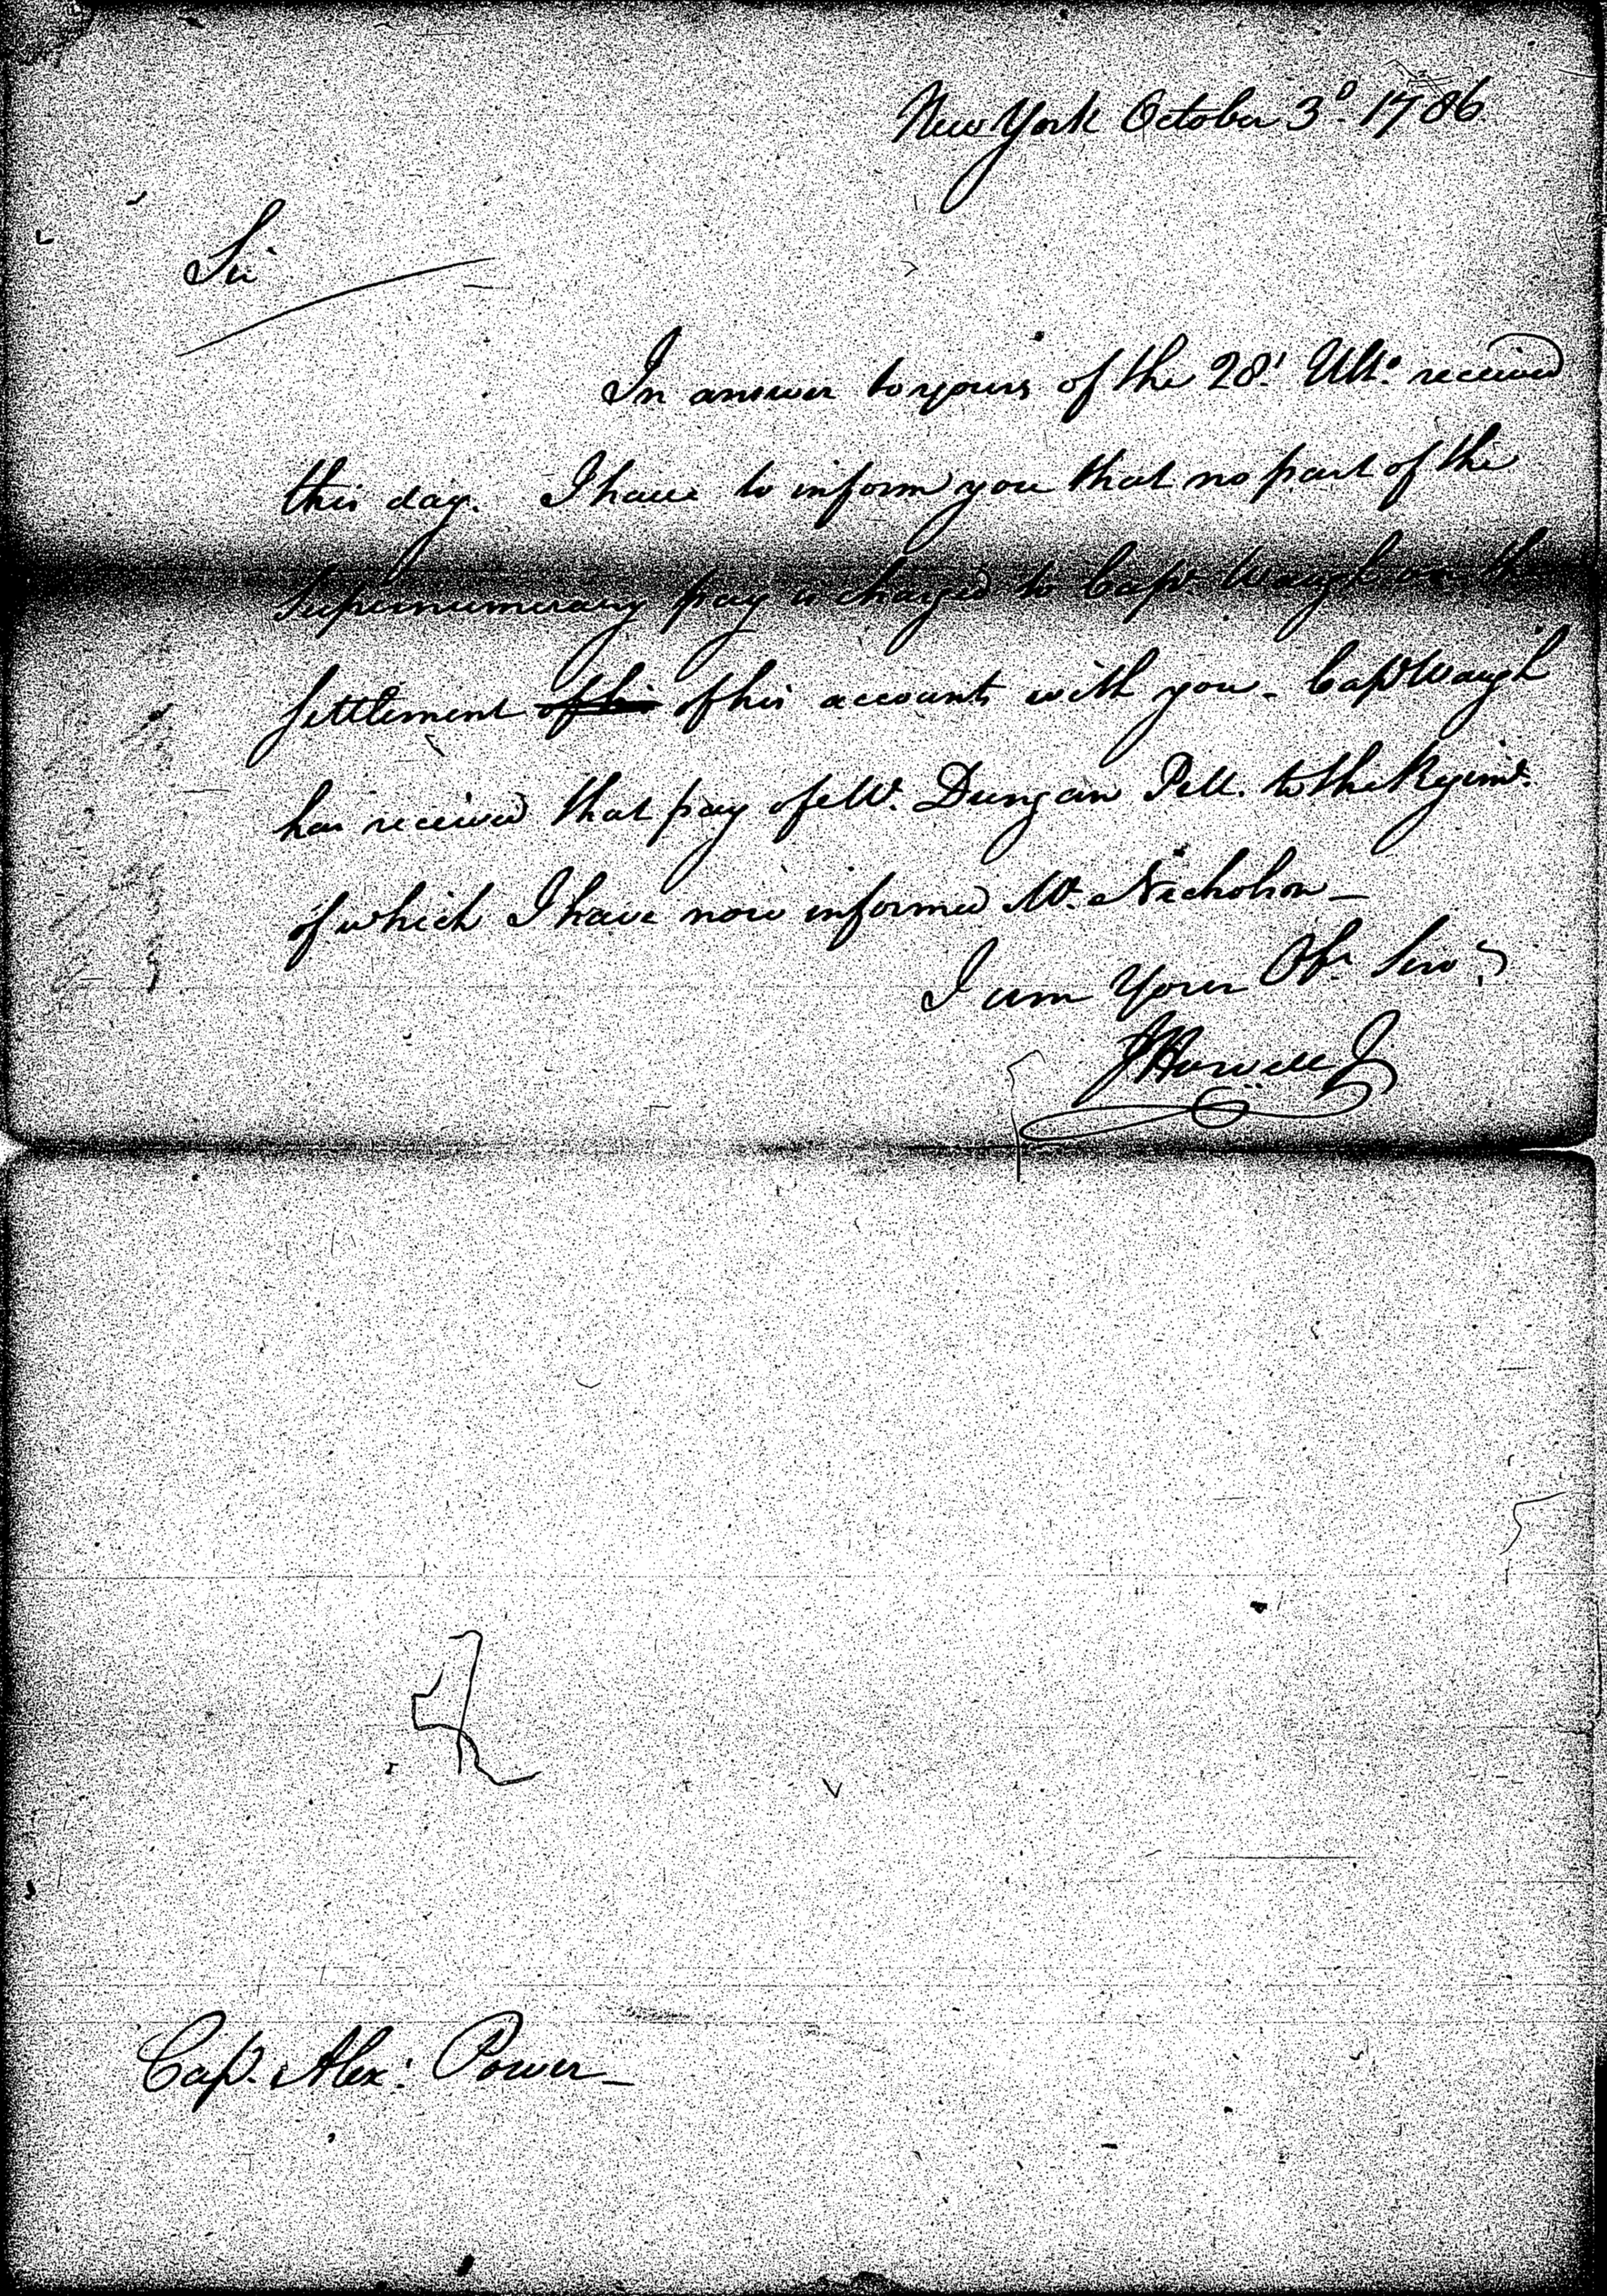 New York October 3d. 1786
Sir
In answer to yours of the 28t. Ulto. received
this day. I have to inform you that no part of the
Supernumerary pay is charged to Capt. Waugh on the
Settlement of his of his accounts with you - Capt Waugh
has received that pay of Mr. Dungan P.M. to the Regimt.
of which I have now informed Mr. Nicholson -
I am Your Obt Servt
J Howell J
Capt. Alexr. Power -